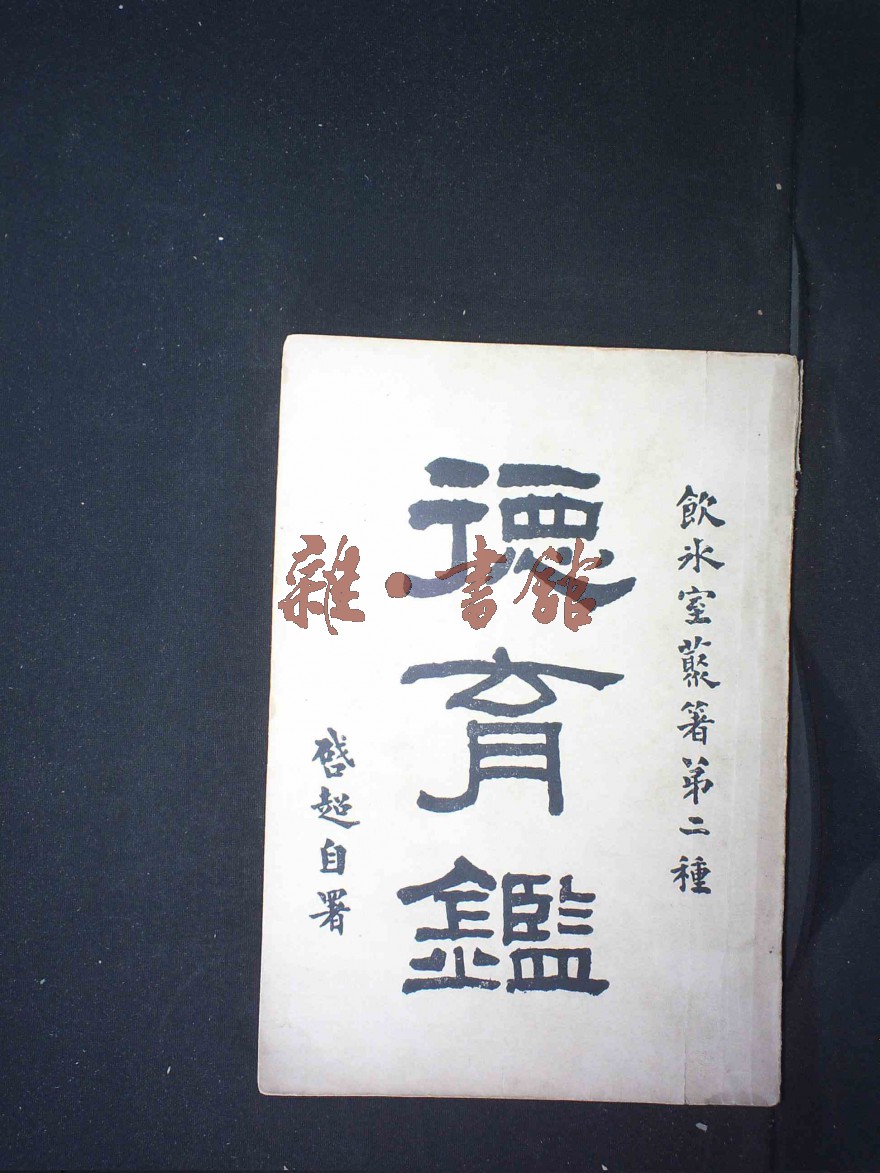 飲氷室叢箸第二種
德育鑑
啓超自署
雜·書館